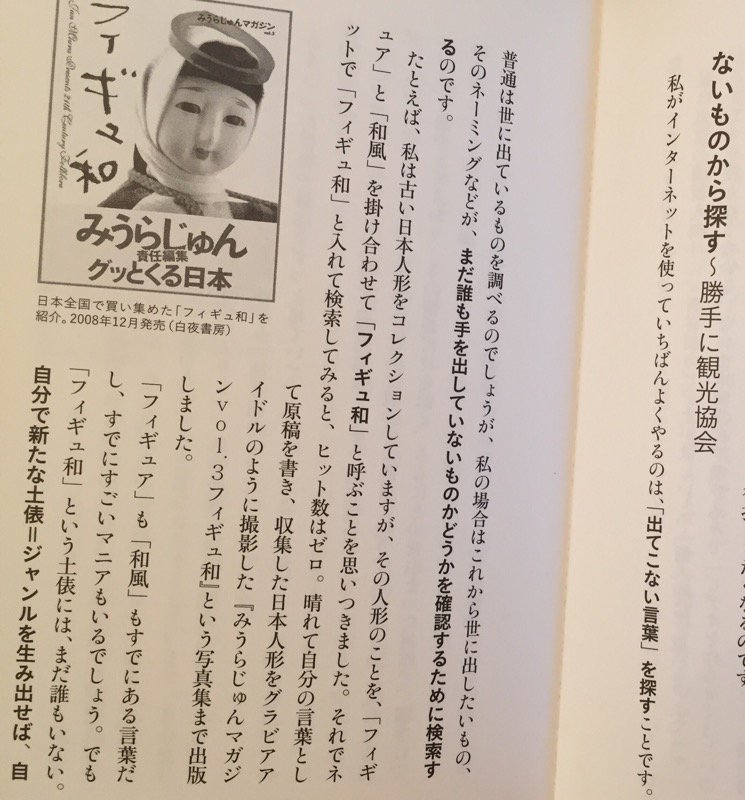 なるのです
ないものから探す〜勝手に観光協会
私がインターネットを使っていちばんよくやるのは、「出てこない言葉」を探すことです。
普通は世に出ているものを調べるのでしょうが、私の場合はこれから世に出したいもの、
そのネーミングなどが、まだ誰も手を出していないものかどうかを確認するために検索す
るのです。
たとえば、私は古い日本人形をコレクションしていますが、その人形のことを、「フィギ
ュア」と「和風」を掛け合わせて「フィギュ和」と呼ぶことを思いつきました。それでネ
ットで「フィギュ和」と入れて検索してみると、ヒット数はゼロ。晴れて自分の言葉とし
て原稿を書き、収集した日本人形をグラビアア
イドルのように撮影した『みうらじゅんマガジ
ンvol.3フィギュ和』という写真集まで出版
しました。
「フィギュア」も「和風」もすでにある言葉だ
し、すでにすごいマニアもいるでしょう。でも
「フィギュ和」という土俵には、まだ誰もいない。
自分で新たな土俵＝ジャンルを生み出せば、自
みうらじゅんマガジン
vol.3
フィギュ和
Jun Miura Presents 21th Century Folklore
みうらじゅん
責任編集
グッとくる日本
日本全国で買い集めた「フィギュ和」を
紹介。2008年12月発売（白夜書房）